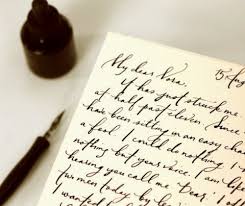 15 Aug
My dear Nora,
It has just struck me. I
at half past eleven. Since
have been sitting in an easy chair
a fool. I could do nothing. I h
nothing but your voice. I am like
hearing you call me 'Dear.' I
two men today by
I wanted